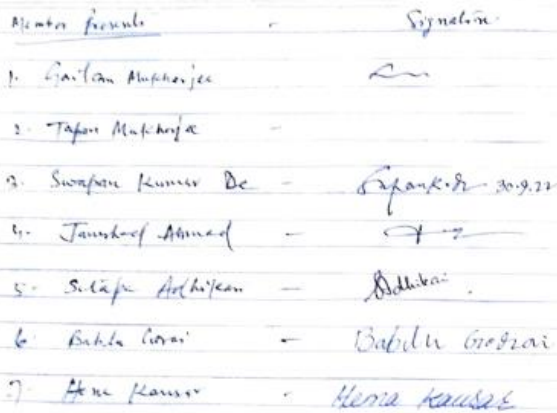 Member Presents - Signature
1. Goutam Mukherjee
2. Tapan Mukherjee -
3. Swapan Kumar De - Swapan K. De 30.9.22
4. Jamshed Ahmad -
5. Sutapa Adhikari - SAdhikari.
6. Bablu Gorai - Bablu Gorai
7. Hena Kausar - Hena Kausar